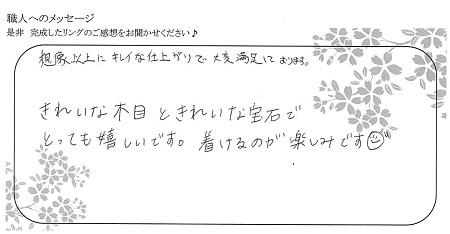 職人へのメッセージ
是非 完成したリングのご感想をお聞かせください♪
想像以上にキレイな仕上がりで大変満足して おります。
きれいな木目ときれいな宝石で
とっても嬉しいです。着けるのが楽しみです☺